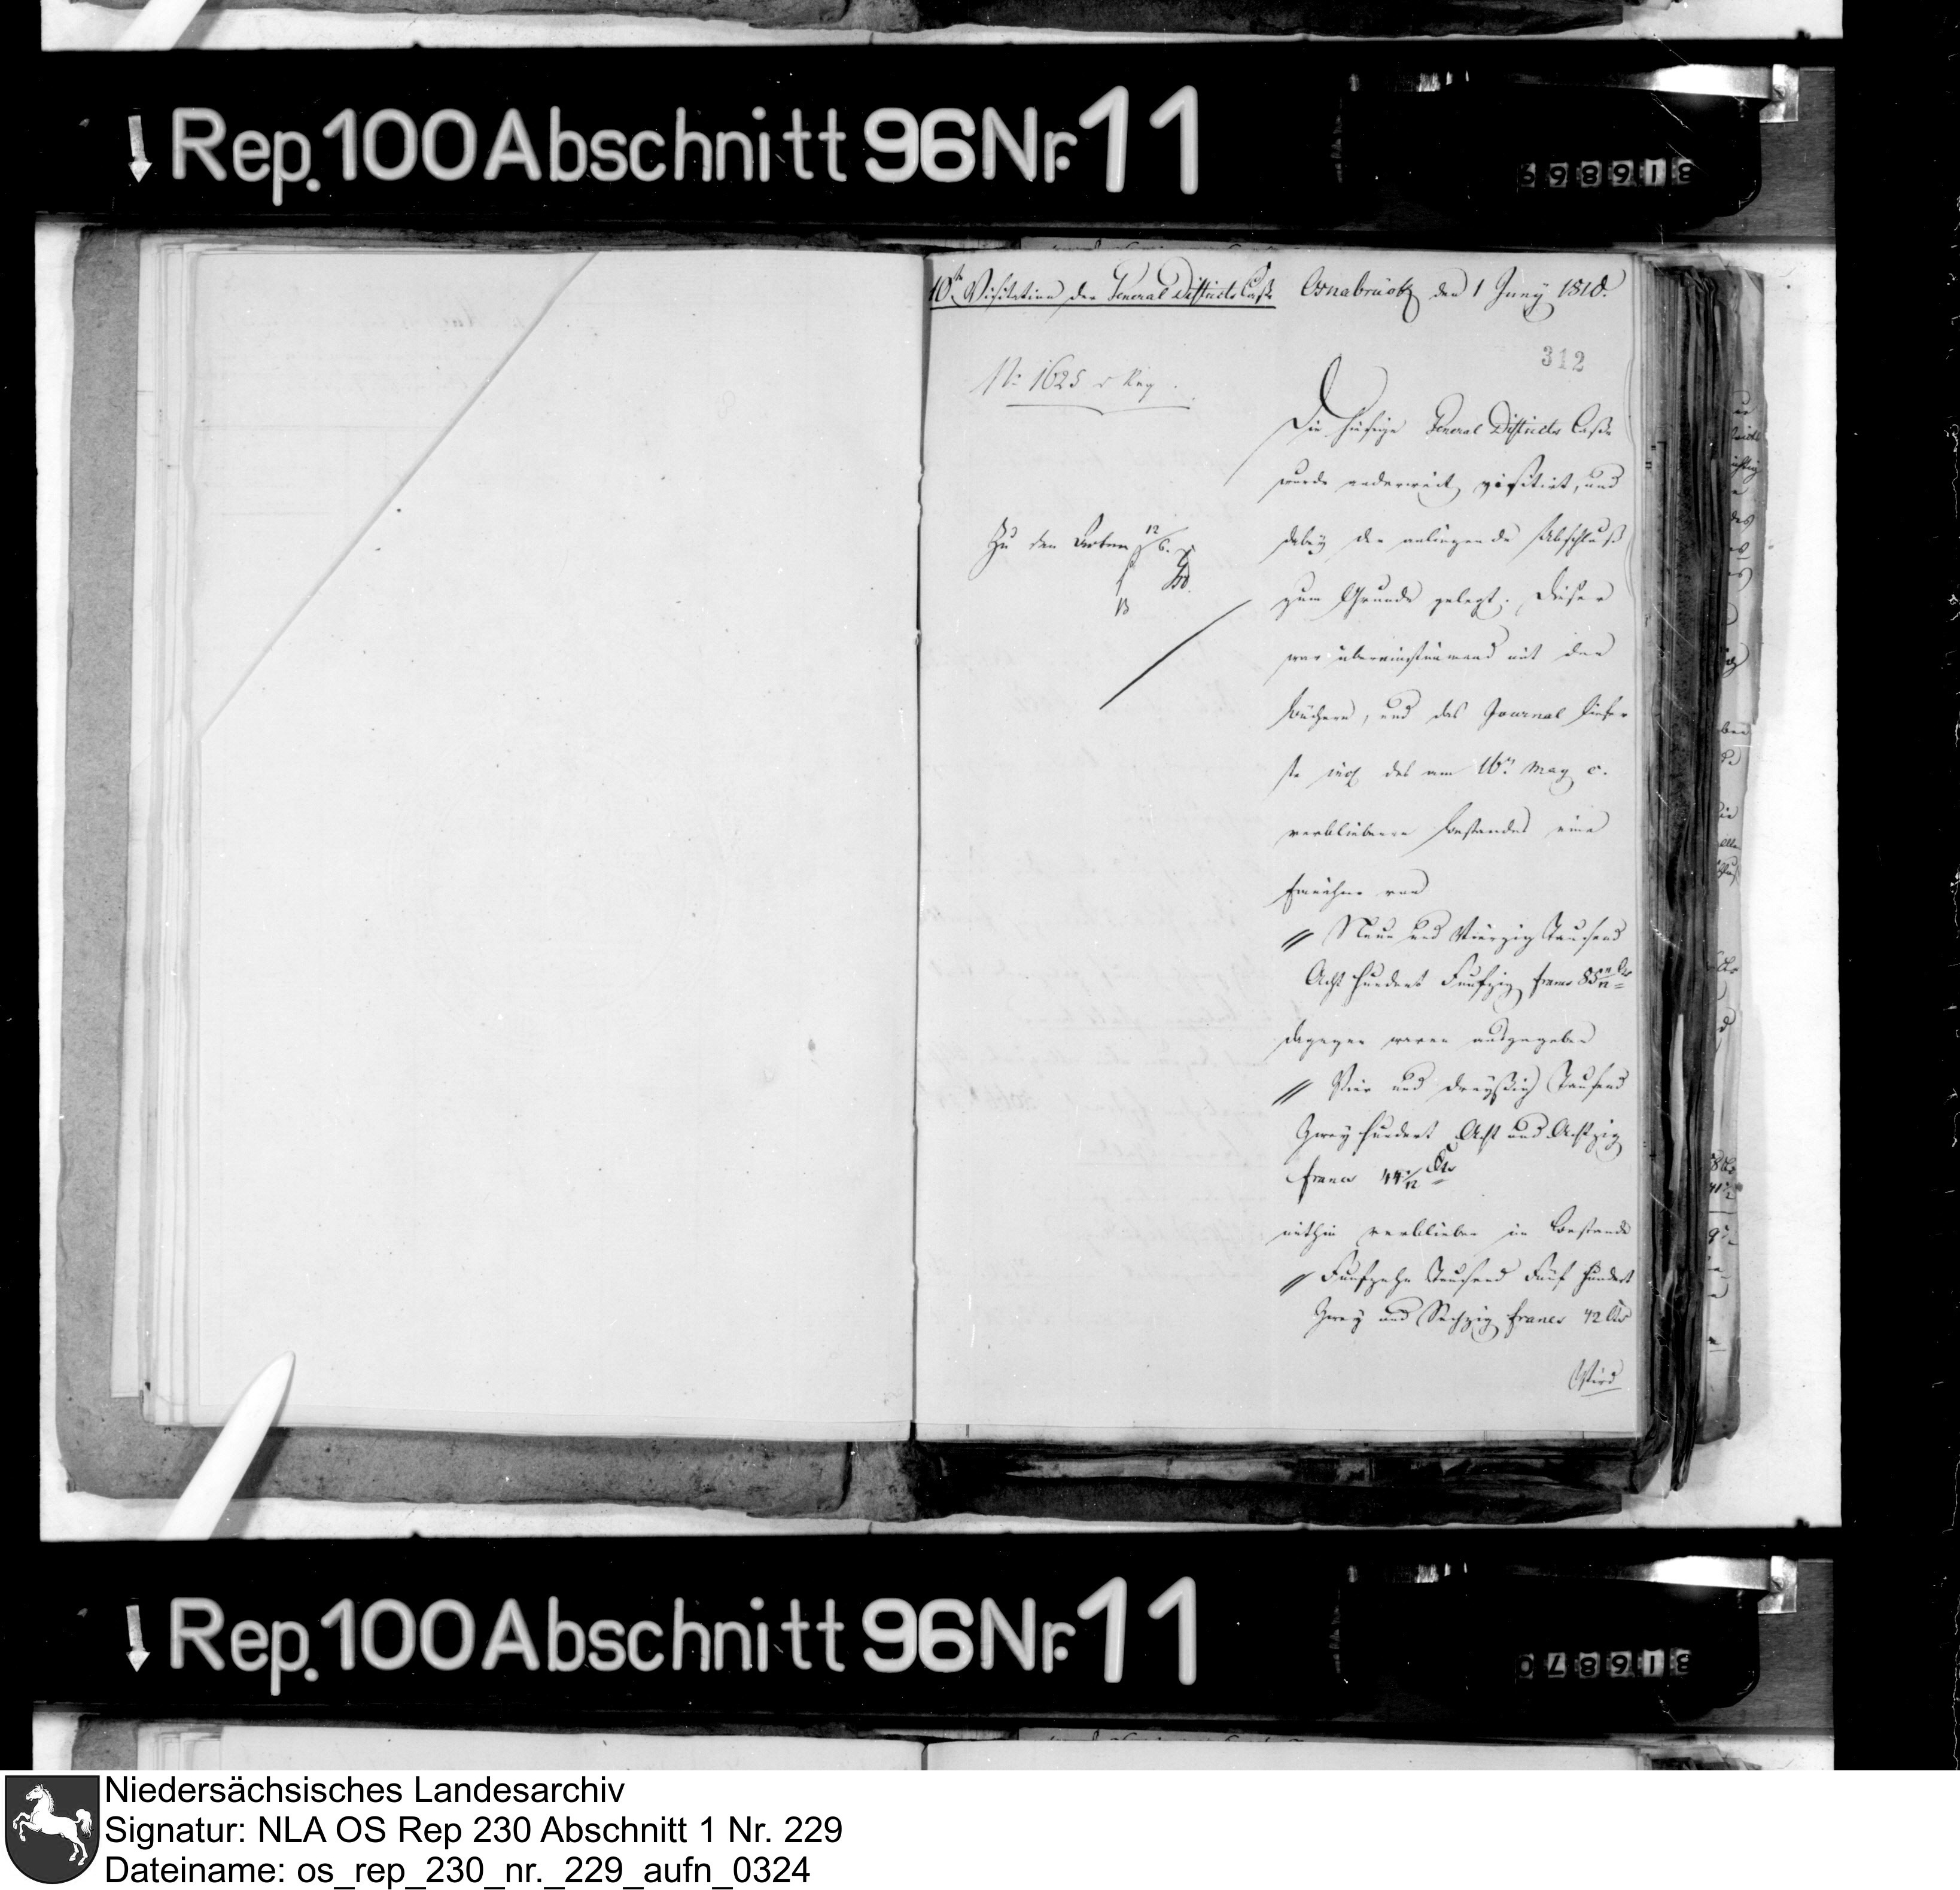 Rep. 100 Abschnitt 96 Nr. 11
316869
10te Visitation der General Districts Casse Osnabrück den 1 Juny 1810.
312
No 1625
Die hiesige General Districts Casse
wurde anderweit visitirt, und
Zu den Acten 12/6.
dabey der anliegende Abschluß
zum Grunde gelegt. Dieser
war übereinstimmend mit den
Büchern, und das Journal liefer
te incl des am 16n May c.
verbliebenen Bestandes eine
Einnahme von
Neun und Vierzig Tausend
Acht hundert Funfzig francs 85
dagegen waren ausgegeben
Vier und dreyßig Tausend
Zwey hundert Acht und Achtzig
francs 44
mithin verblieben in Bestande
Funfzehn Tausend Fünf hundert
Zwey und Sechzig francs 42 Cts
Wird
Rep. 100 Abschnitt 96 Nr. 11
316870
Niedersächsisches Landesarchiv
Signatur: NLA OS Rep 230 Abschnitt 1 Nr. 229
Dateiname: os_rep_230_nr._229_aufn_0324